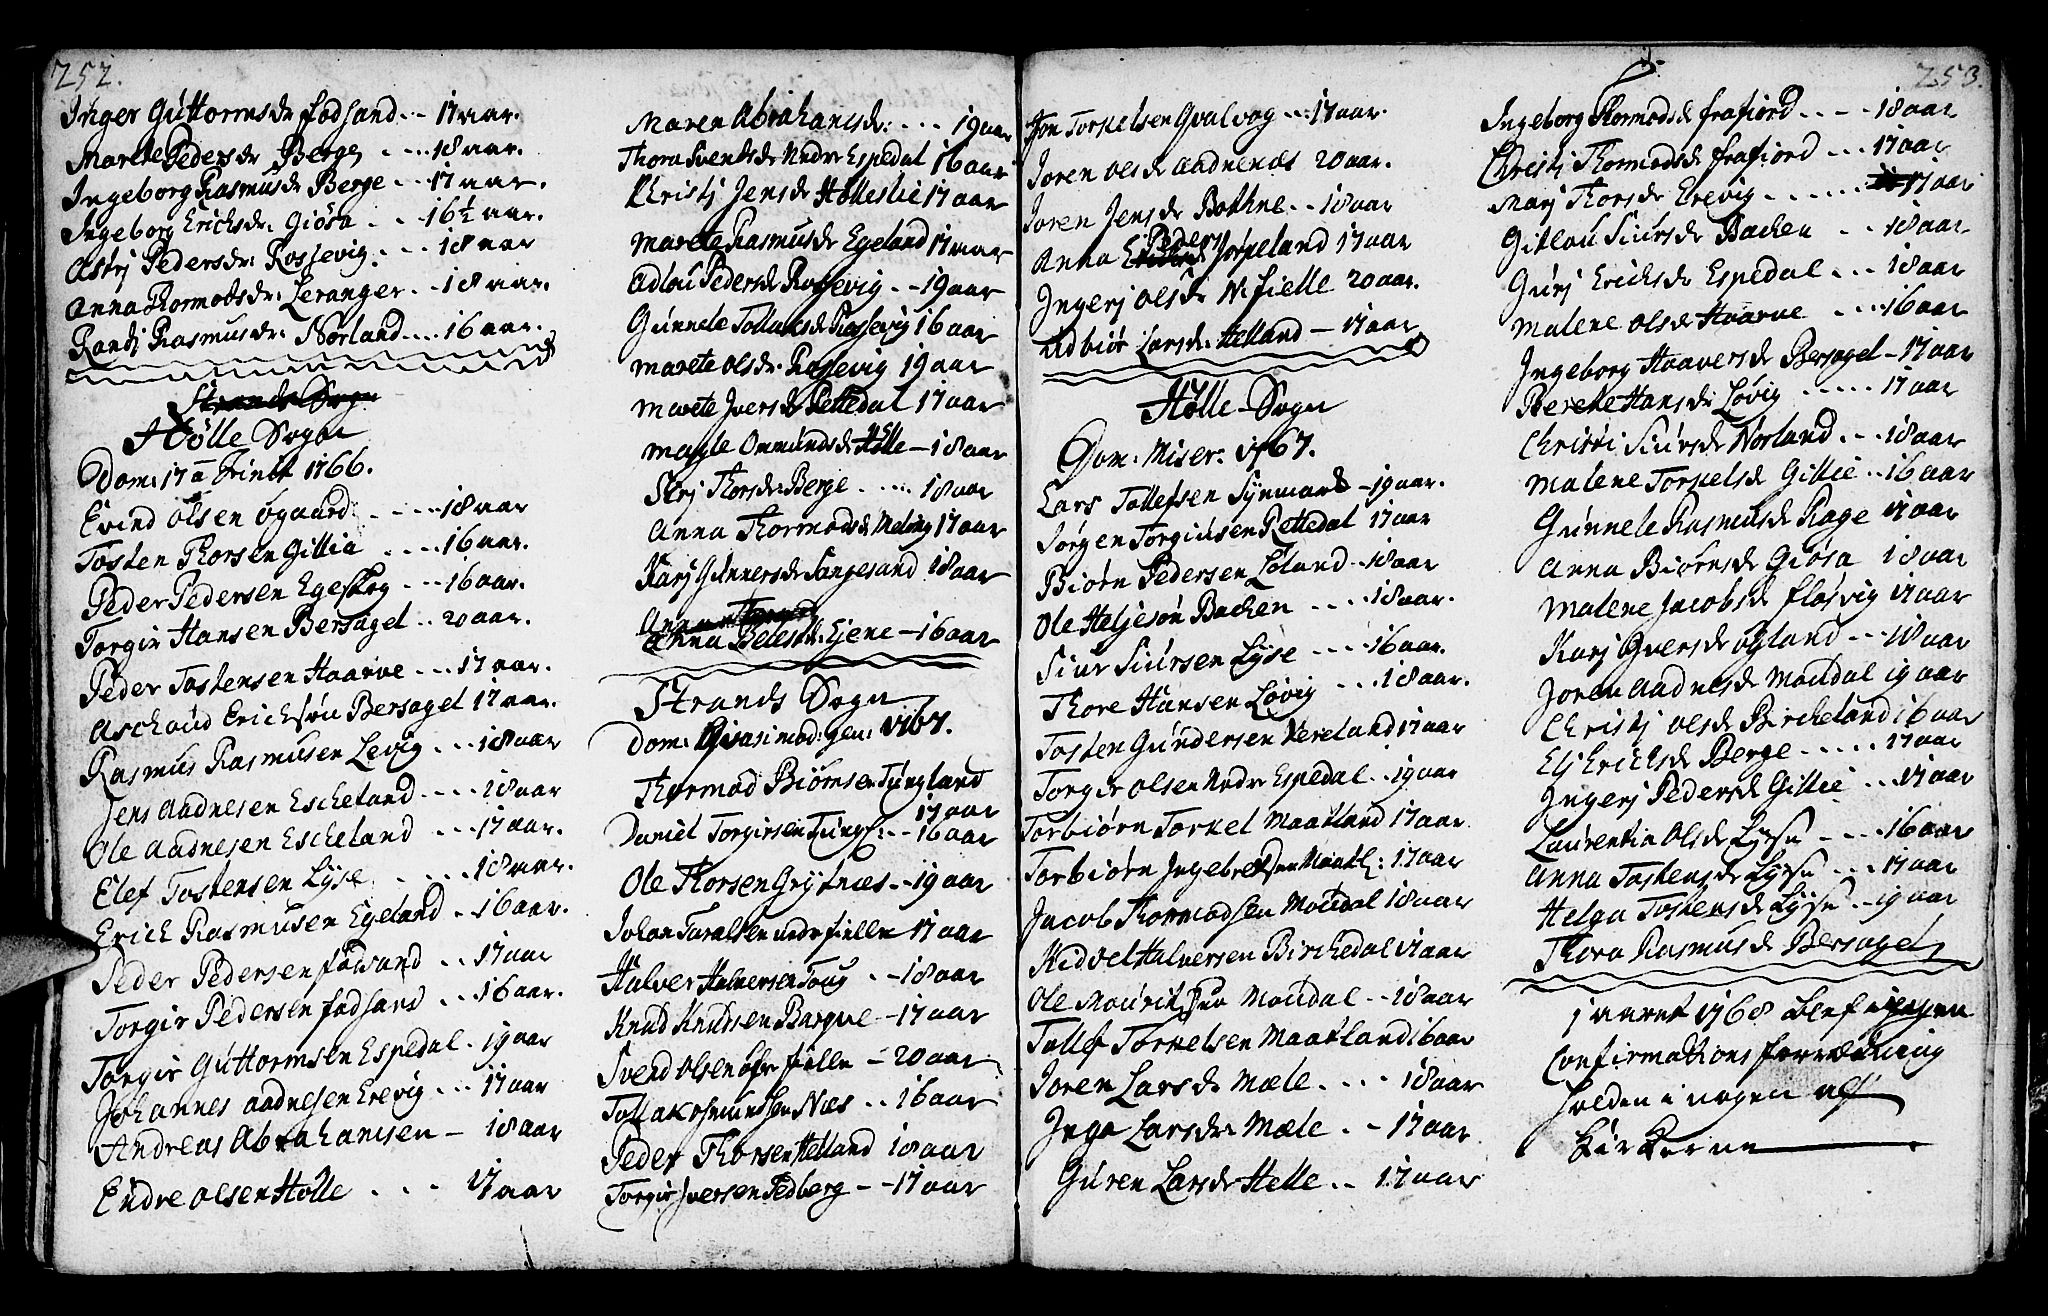 252.
Inger Guttormsdr fodsand -- 17 aar.
Marete Pedersdr Berge --- 18 aar.
Ingeborg Rasmusdr Berge -- 17 aar.
Ingeborg Erichsdr: Giøsa -- 16½ aar.
Astrj Pedersdr: Rossevig --- 18 aar
Anna Thormodsdr: Leranger -- 18 aar.
Randj Rasmusdr: Norland --- 16 aar.
Strands Sogn
Hølle Sogn
Dom: 17 a Trinit 1766.
Evind Olsen Øgaard --- 18 aar
Tosten Thorsen Gillia --- 16 aar.
Peder Pedersen Egeskog --- 16 aar.
Torgir Hansen Bersagel -- 20 aar.
Peder Tostensen Haarve --- 17 aar.
Aschoud Erichsøn Bersagel 17 aar.
Rasmus Rasmusen Levig --- 18 aar
Jens Aadnesen Escheland ---- 18 aar
Ole Aadnesen Escheland --- 17 aar.
Elef Tostensen Lyse ---- 18 aar.
Erich Rasmusen Egeland -- 16 aar.
Peder Pedersen fodsand -- 17 aar
Torgir Pedersen fodsand -- 16 aar.
Torgir Guttormsen Espedal - 19 aar
Johannes Aadnesen Erevig --- 17 aar
Andreas Abrahamsen - 18 aar
Endre Olsen Hölle --- 17 aar
Maren Abrahamsdr: --- 19 aar
Thora Svendsdr Nedre Espedal 16 aar
Christj Jensdr Hølleslie 17 aar
Marete Rasmusdr Egeland 17 aar
Adlou Pedersdr Rossevig -- 19 aar
Gunnele Tollaksdr Rossevig 16 aar
Marete Olsdr: Rossevig 19 aar
Marete Iversdr Pettedal 17 aar
Magle Ommundsdr Hølle - 18 aar
Strj Thorsdr: Berge ---- 18 aar
Anna Thormodsdr Meling 17 aar
Karj Gunnersdr Tangesand 18 aar
Anna
Anna Peders: Eiene - 16 aar
Strands Sogn
Dom: Qvasimod: gen: 1767.
Thormod Biörnsen Tungland
17 aar
Daniel Torgirsen Tungl: -- 16 aar
Ole Thorsen Grytnæs -- 19 aar
Johan Taraldsen nedre fielle 17 aar
Halver Halversen Toug -- 18 aar
Knud Knudsen Bargue -- 17 aar
Svend Olsen øfre fielle - 20 aar
Tollak osmundsen Næs -- 16 aar
Peder Thorsen Helland 18 aar
Torgir Iversen Tedberg -- 17 aar
253.
Jon Torkelsen Qvalvog --- 17 aar.
Joren Olsdr Aadnenæs 20 aar.
Joren Jensdr Bothne -- 18 aar
Anna Peders Jørpeland 17 aar
Ingerj Olsdr N: fielle 20 aar.
Udbiør Larsdr: Helland - 17 aar
Hölle-Sogn
Dom: Miser: 1767.
Lars Tollefsen Synmard - 19 aar.
Jørgen Torgiusen Pettedal 17 aar
Biörn Pedersen Löland -- 18 aar
Ole Heljesön Bachen ---- 18 aar.
Siur Siursen Lyse ---- 16 aar.
Thore Hansen Løvig --- 18 aar.
Tosten Gundersen Vereland 17 aar
Torgir Olsen Nedre Espedal -- 19 aar
Torbiørn Torkel Maakland 17 aar
Torbiörn Ingebredsen Maakl: 17 aar
Jacob Thormodsen Moudal 18 aar
Kidvel Halversen Birchedal 17 aar
Ole Mouritssen Moudal -- 18 aar
Tollef Torkelsen Maakland 16 aar
Joren Larsdr Mæle ---- 18 aar
Inga Larsdr: Mæle -- 17 aar
Guren Larsdr Helle -- 17 aar
Ingeborg Thormodsdr frafiord --- 18 aar
Christj Thormodsdr frafiord --- 17 aar
Marj Thorsdr Erevig ------ 17 aar
Gitlou Siursdr Bachen -- 18 aar
Gurj Erichsdr Espedal --- 18 aar
Malene Olsdr Haarve --- 16 aar
Ingeborg Haaversdr Bersagel - 17 aar
Berethe Hansdr Løvig ----- 17 aar
Christi Siursdr Norland --- 18 aar
Malene Torkelsdr Gillie -- 16 aar
Gunnele Rasmusdr Rage 17 aar
Anna Biørnsdr Giøsa 18 aar
Malene Jacobsdr fløsvig 17 aar
Karj Qversdr Øgland --- 18 aar
Joren Aadnesdr Moudal 19 aar
Christj Olsdr Bircheland 16 aar
Elj Erichsdr Berge ----- 17 aar
Ingerj Pedersdr Gillie -- 17 aar
Laurentia Olsdr Lyse ---- 16 aar
Anna Tostensdr Lyse --- 17 aar
Helga Tostensdr Lyse -- 19 aar
Thora Rasmusdr Bersagel
j aaret 1768 blef ingen
Confirmations forrætning
holden i nogen af
Kirkerne